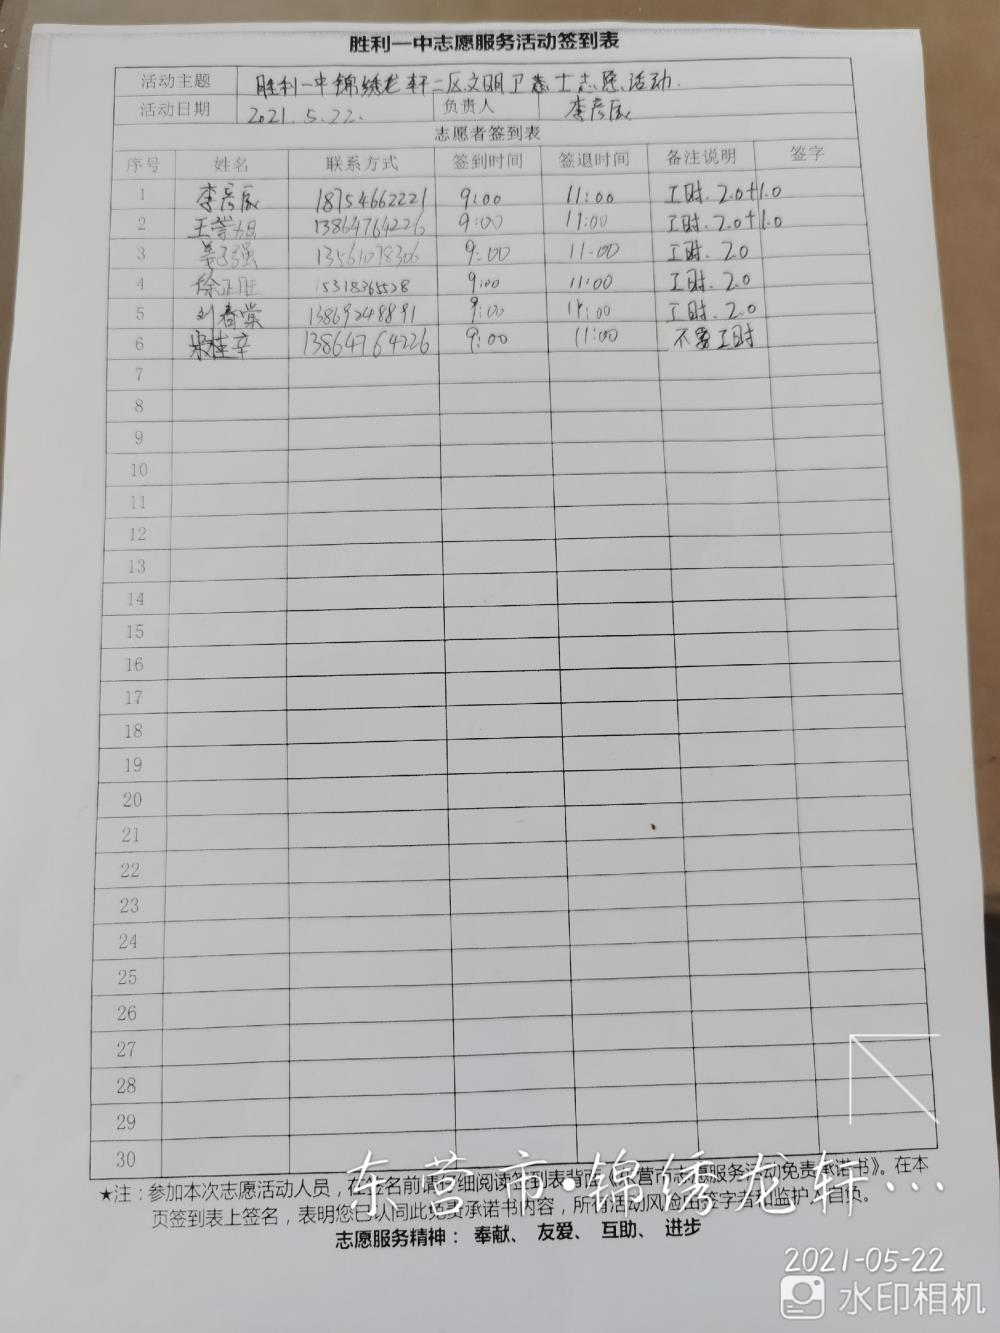 胜利一中志愿服务活动签到表
活动主题 胜利一中锦绣龙轩二区文明卫士志愿活动.
活动日期 2021.5.22. 负责人 李彦辰
志愿者签到表
序号 姓名 联系方式 签到时间 签退时间 备注说明 签字
1 李彦辰 18754662221 9:00 11:00 工时.2.0+1.0
2 13864764226 9:00 11:00 工时.2.0+1.0
3 13561078306 9:00 11:00 工时.2.0
4 徐正旺 15318365528 9:00 11:00 工时.2.0
5 刘春棠 13869248891 9:00 11:00 工时.2.0
6 宋桂辛 13864764226 9:00 11:00 不要工时
7
8
9
10
11
12
13
14
15
16
17
18
19
20
21
22
23
24
25
26
27
28
29
30
东营市·锦绣龙轩...
★注:参加本次志愿活动人员,在签名前请仔细阅读签到表背面《东营市志愿服务活动免责承诺书》。在本
页签到表上签名,表明您已认同此免责承诺书内容,所有活动风险由签字者和监护人自负。
志愿服务精神: 奉献、 友爱、 互助、 进步
2021-05-22
水印相机